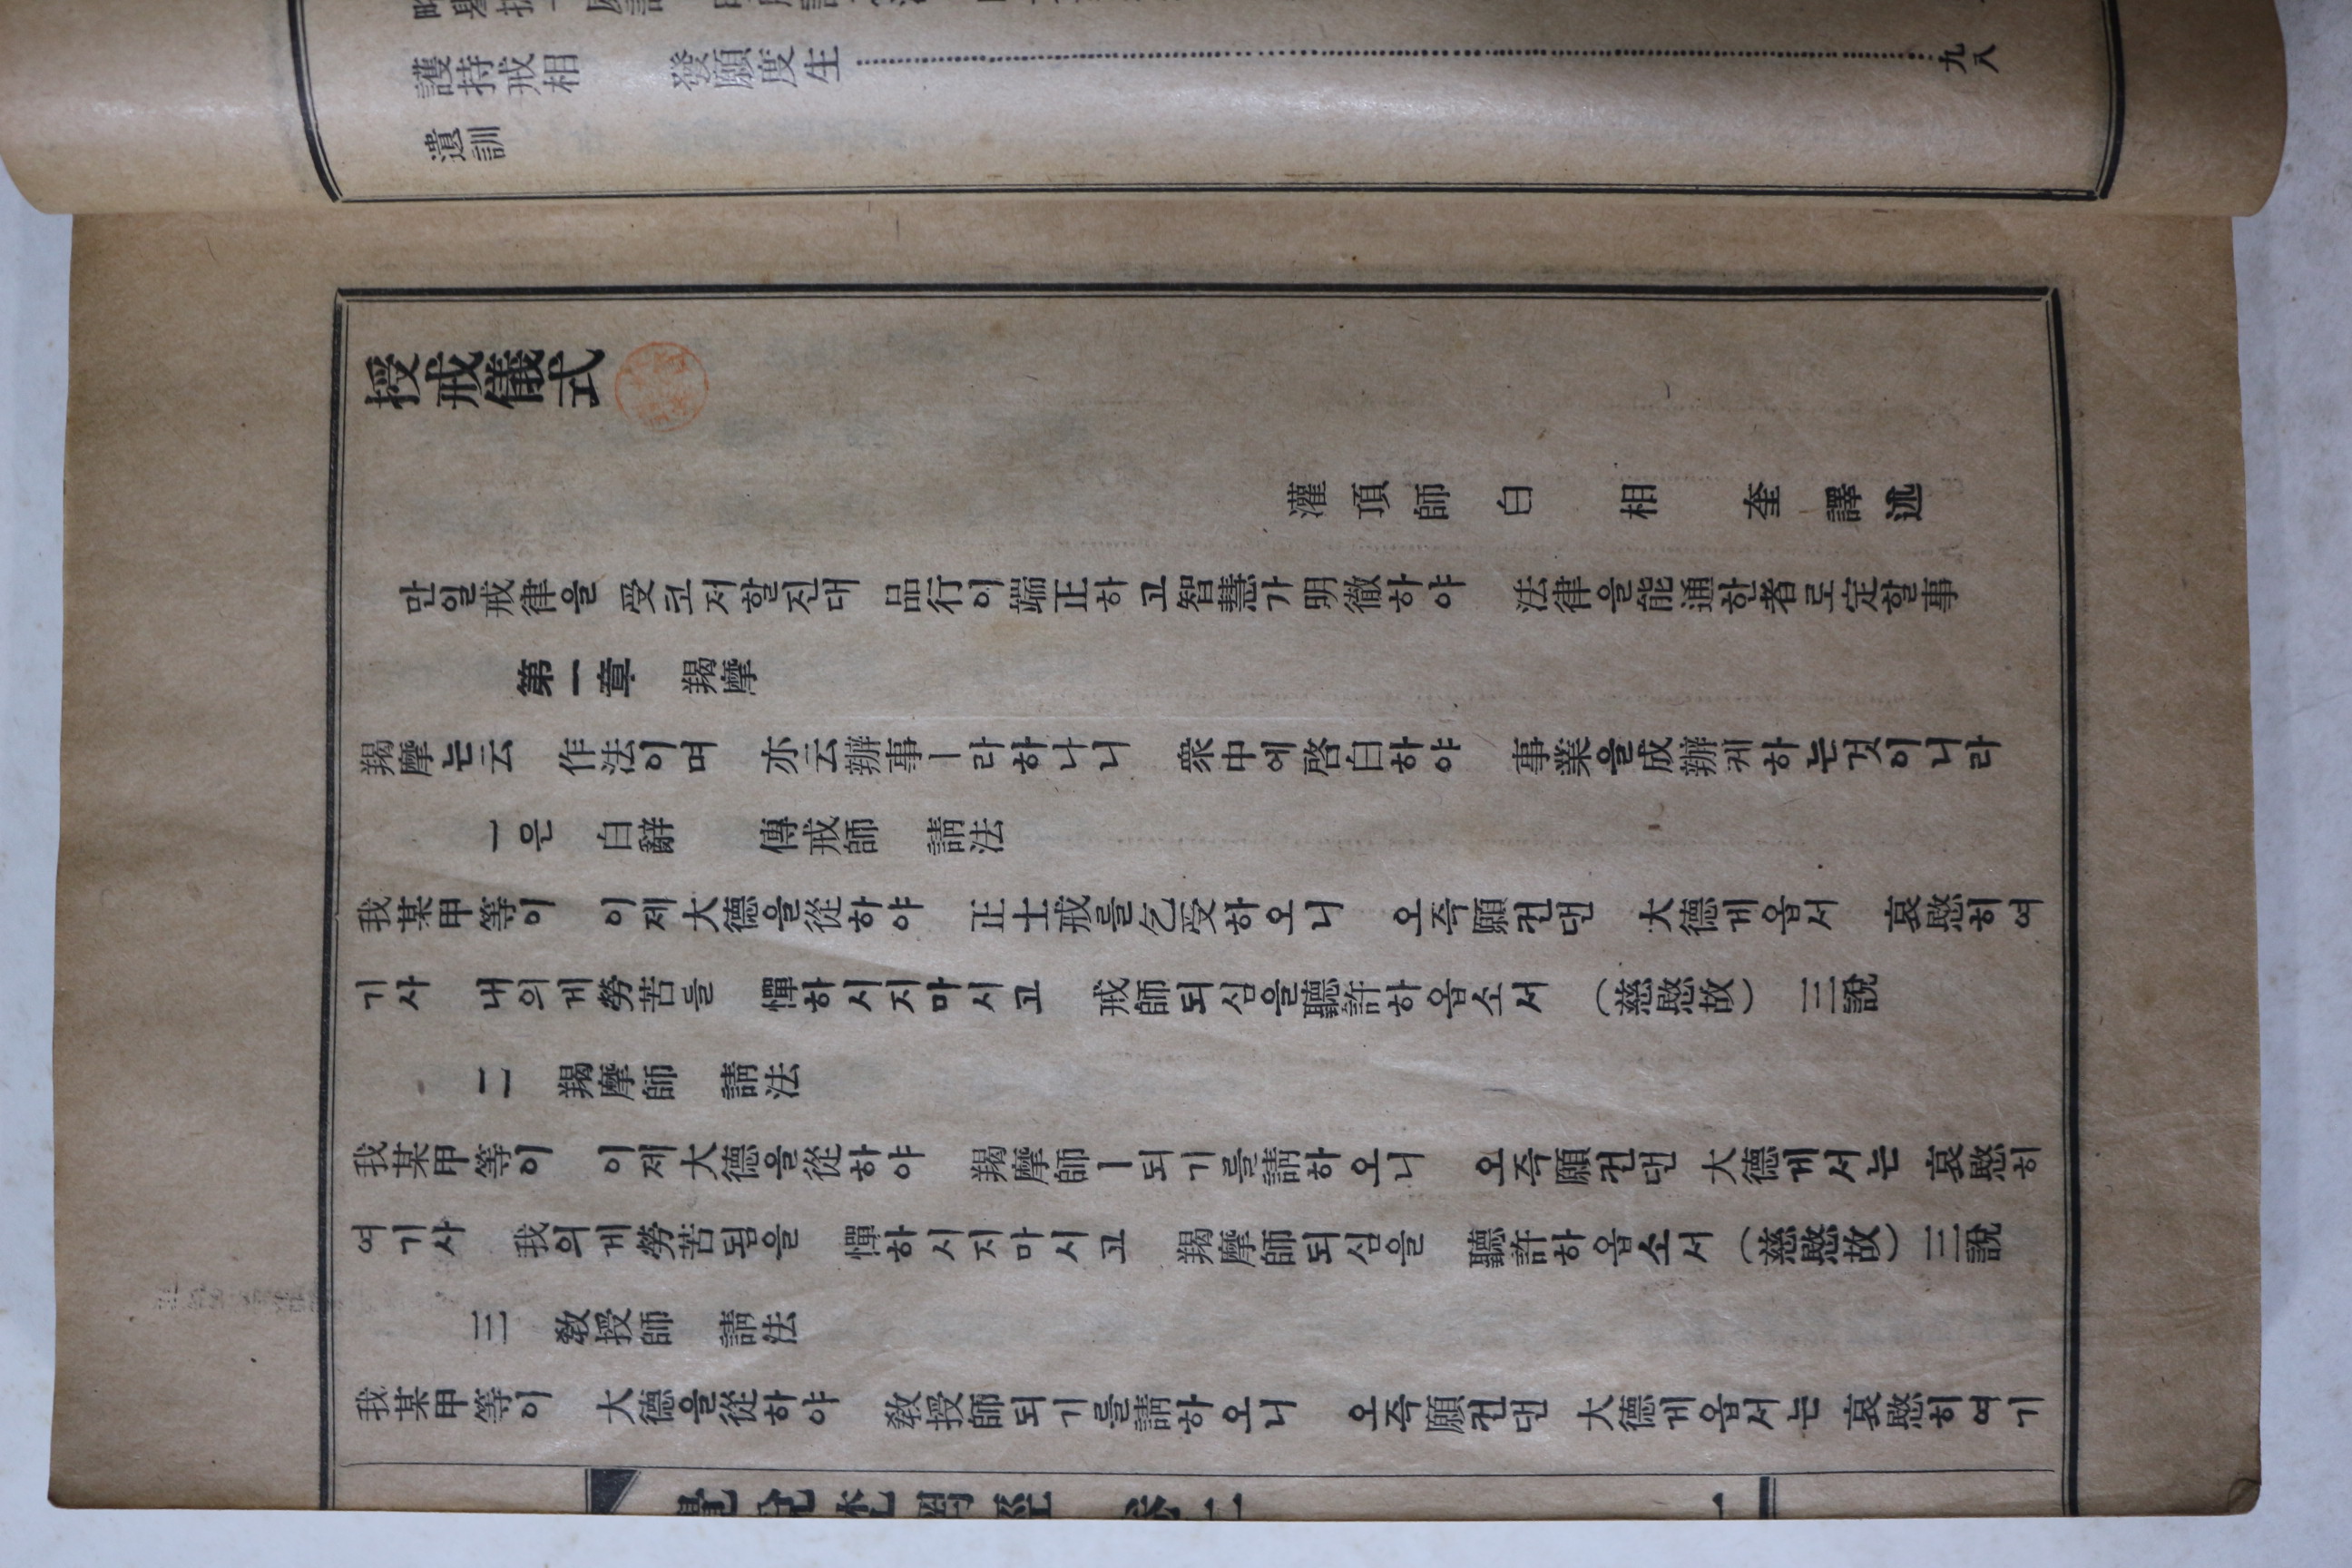 護持戒相 發願度生 九八
遺訓
授戒儀式
灌頂師 白相奎 譯述
만일戒律을 受코저할진대 品行이端正하고智慧가明徹하야 法律을能通한者로定할事
第一章 羯摩
羯摩는云 作法이며 亦云辦事ㅣ라하나니 衆中에啓白하야 事業을成辦케하는것이니라
一은 白辭 傳戒師 請法
我某甲等이 이제大德을從하야 正士戒를乞受하오니 오즉願컨댄 大德게옵서 哀愍히여
기사 내의게勞苦를 憚하시지마시고 戒師되심을聽許하옵소서 (慈愍故) 三說
二 羯摩師 請法
我某甲等이 이제大德을從하야 羯摩師ㅣ되기를請하오니 오즉願컨댄 大德게서는 哀愍히
여기사 我의게勞苦됨을 憚하시지마시고 羯摩師되심을 聽許하옵소서 (慈愍故) 三說
三 敎授師 請法
我某甲等이 大德을從하야 敎授師되기를請하오니 오즉願컨댄 大德게옵서는 哀愍히여기